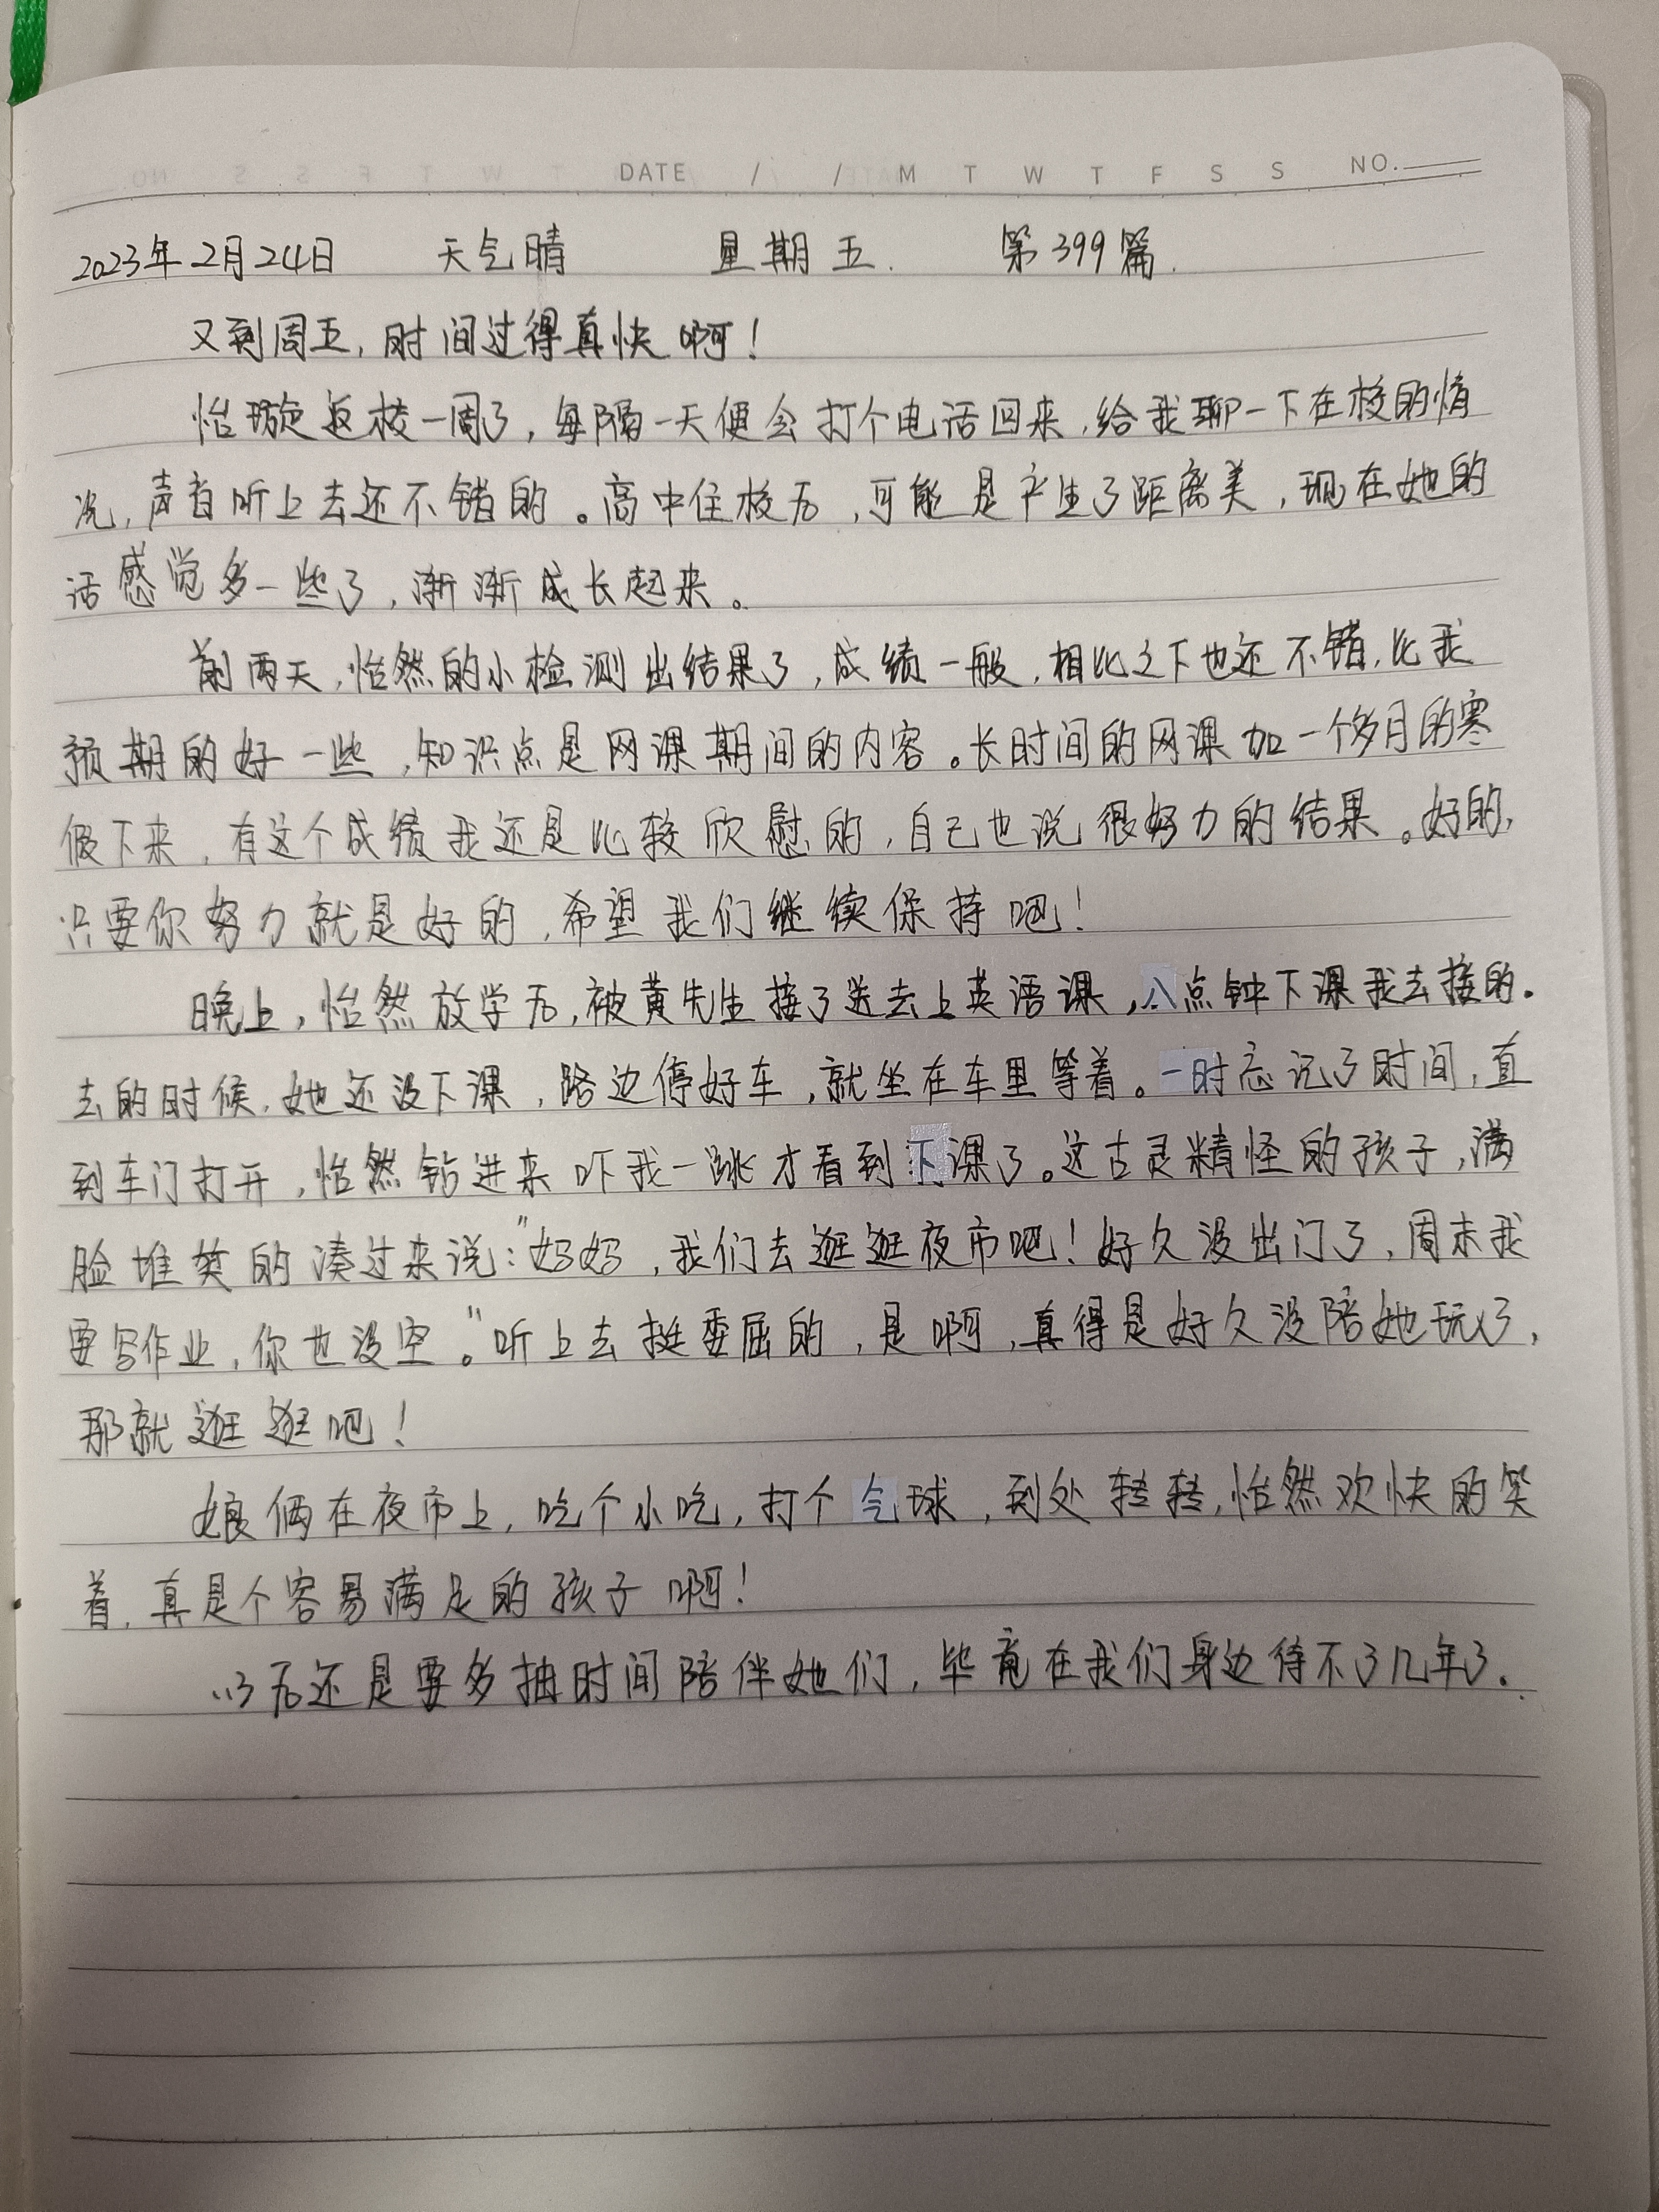 DATE / / M T W T F S S NO.
2023年2月24日 天气晴 星期五. 第399篇.
又到周五,时间过得真快啊!
怡璇返校一周了,每隔一天便会打个电话回来,给我聊一下在校的情
况,声音听上去还不错的。高中住校后,可能是产生了距离美,现在她的
话感觉多一些了,渐渐成长起来。
前两天,怡然的小检测出结果了,成绩一般,相比之下也还不错,比我
预期的好一些,知识点是网课期间的内容。长时间的网课加一个多月的寒
假下来,有这个成绩我还是比较欣慰的,自己也说很努力的结果。好的,
只要你努力就是好的,希望我们继续保持吧!
晚上,怡然放学后,被黄先生接了送去上英语课,八点钟下课我去接的.
去的时候,她还没下课,路边停好车,就坐在车里等着。一时忘记了时间,直
到车门打开,怡然钻进来吓我一跳才看到下课了。这古灵精怪的孩子,满
脸堆笑的凑过来说:"妈妈,我们去逛逛夜市吧!好久没出门了,周末我
要写作业,你也没空。"听上去挺委屈的,是啊,真得是好久没陪她玩了,
那就逛逛吧!
娘俩在夜市上,吃个小吃,打个气球,到处转转,怡然欢快的笑
着,真是个容易满足的孩子啊!
以后还是要多抽时间陪伴她们,毕竟在我们身边待不了几年了.